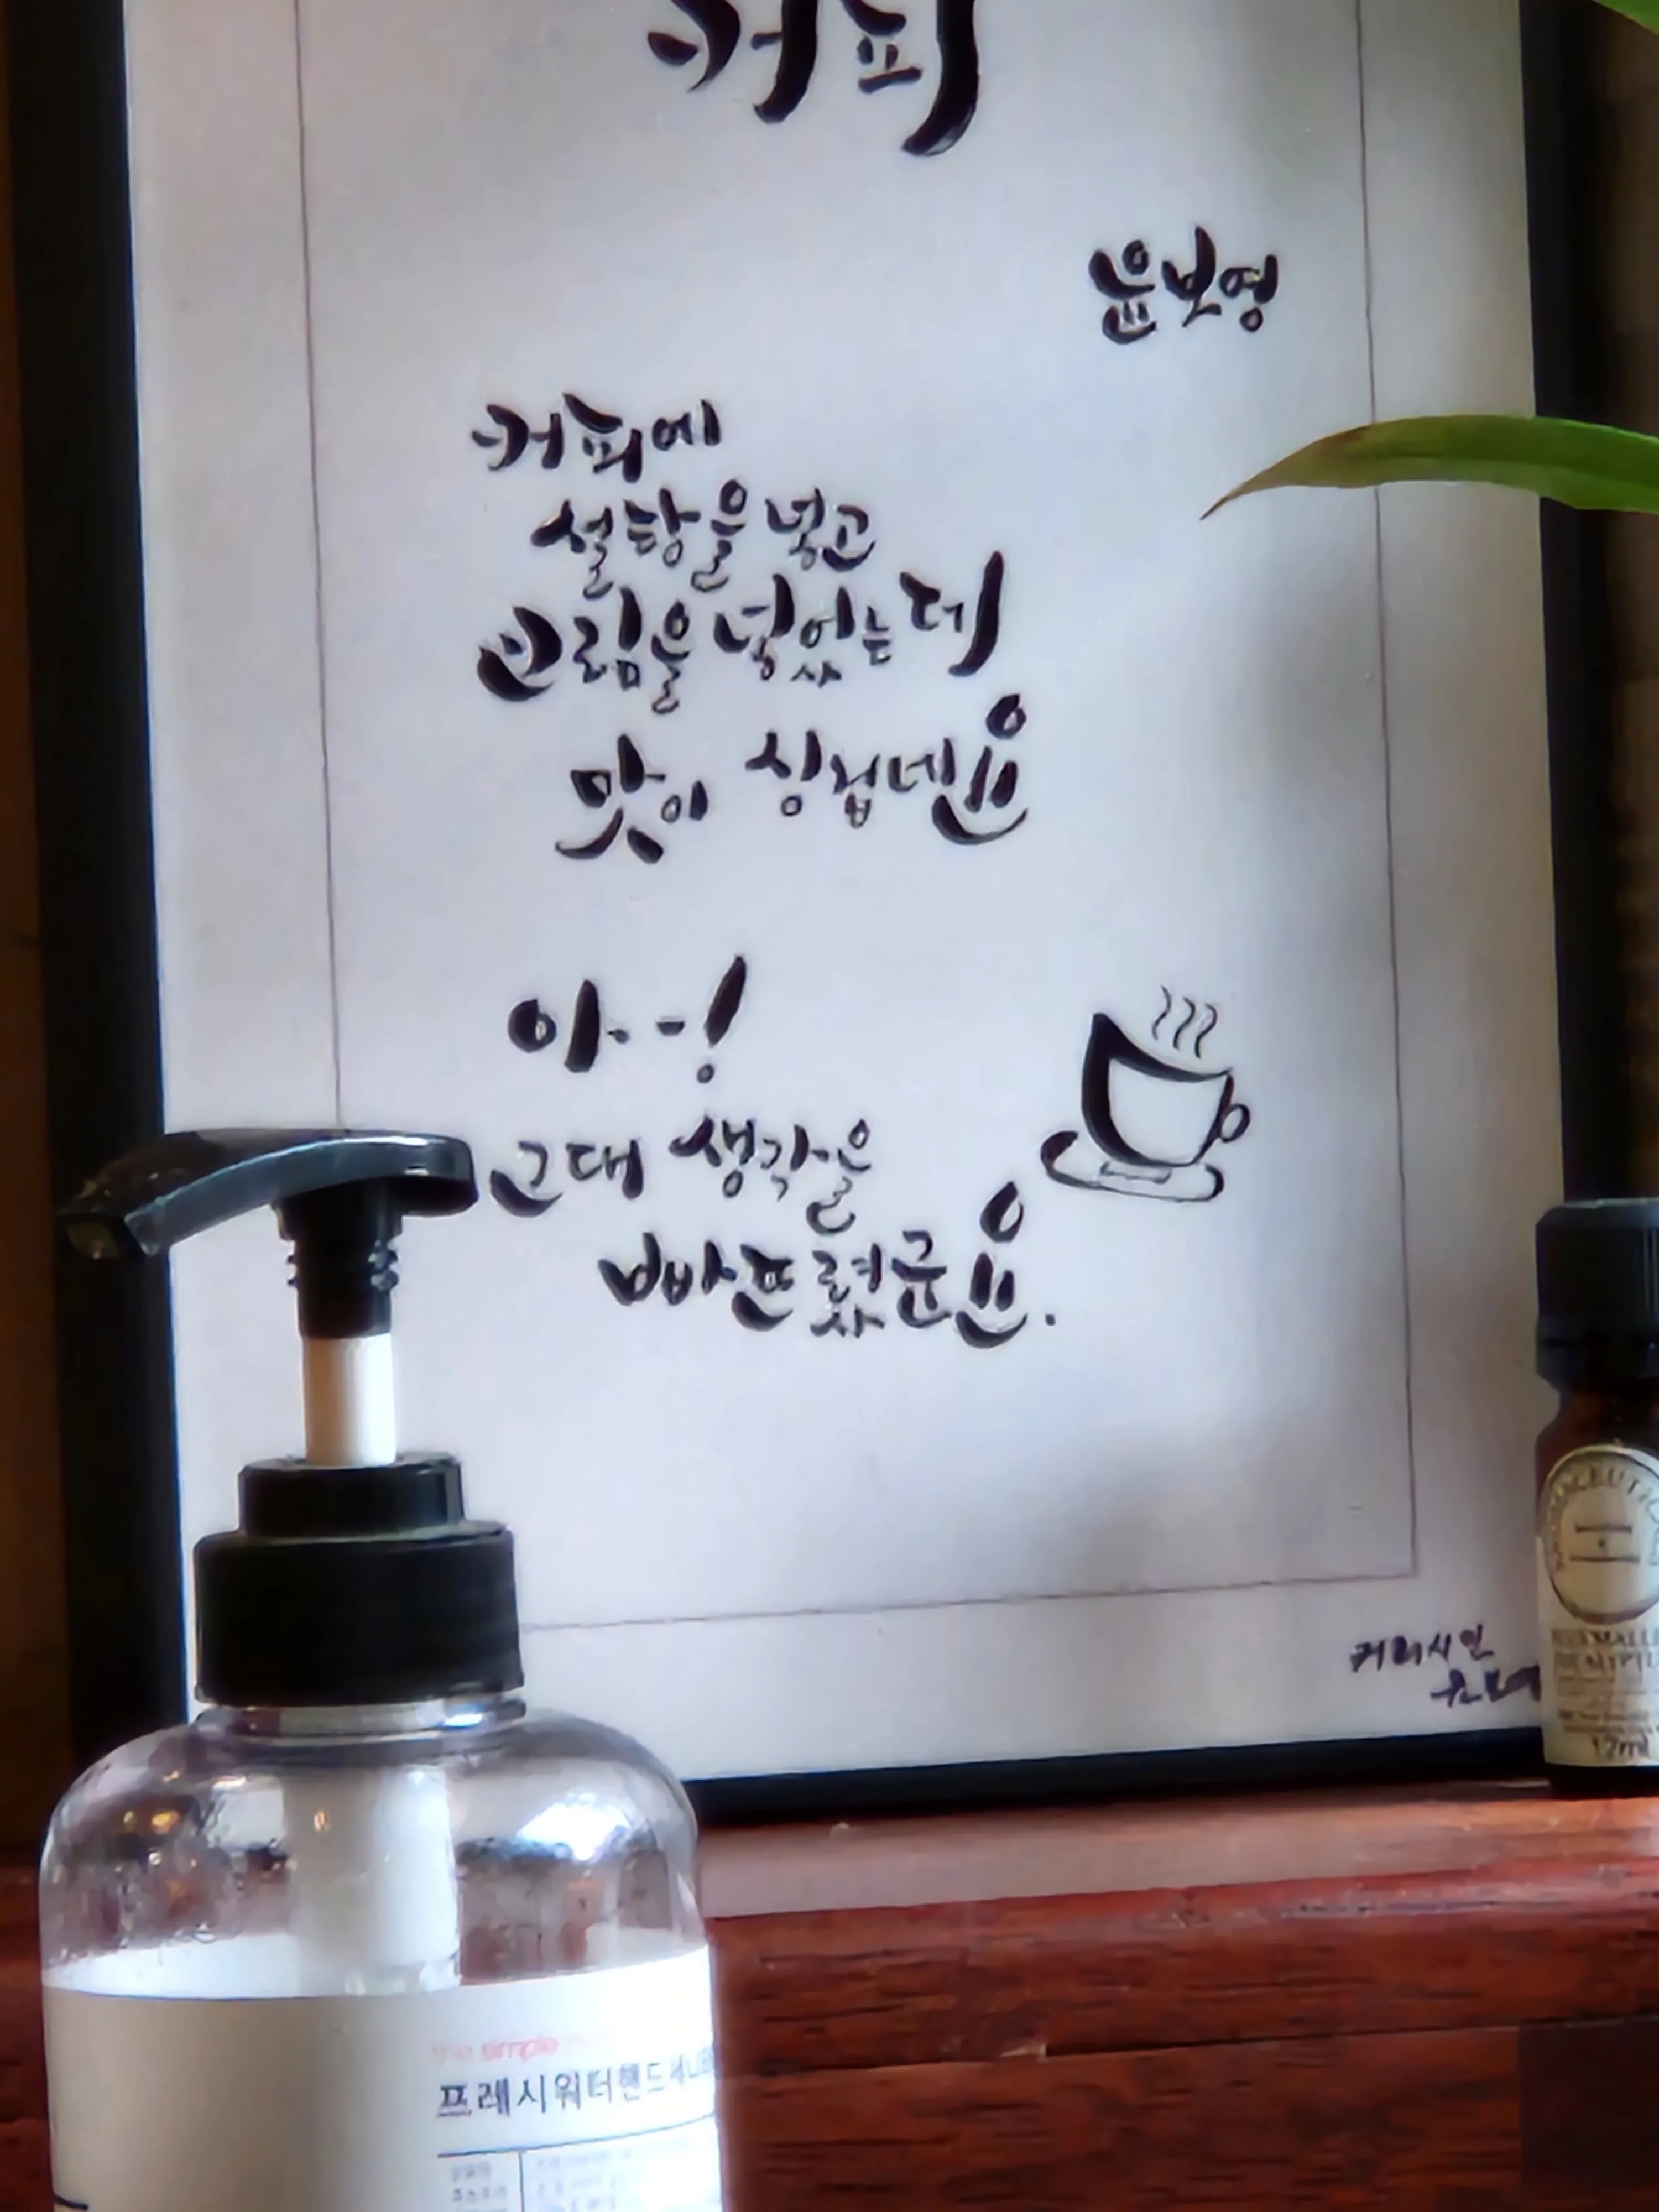 커피
윤보영
커피에
설탕을 넣고
크림을 넣었는데
맛이 싱겁네요
아--!
그대 생각을
빠뜨렸군요.
커피시인
simple
프레시워터핸드
12ml